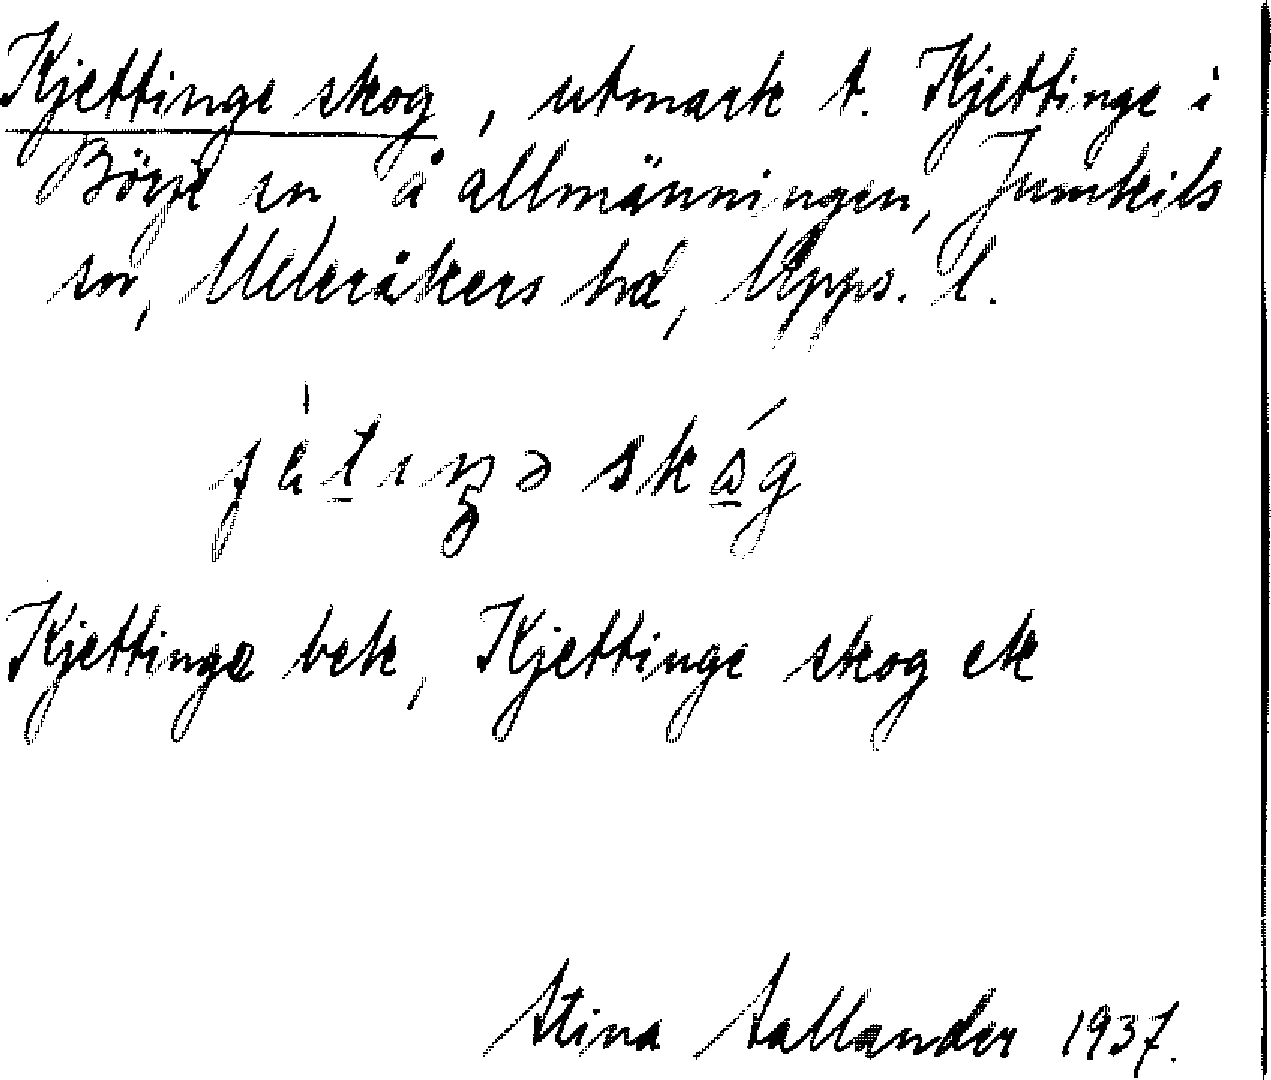 Kjettinge skog, utmark t. Kjettinge i
Börje sn å allmänningen, Jumkils
sn, Ulleråkers hd, Upps. l.
skå̱g
Kjettinge bek, Kjettinge skog ek
Stina Sallander 1937.